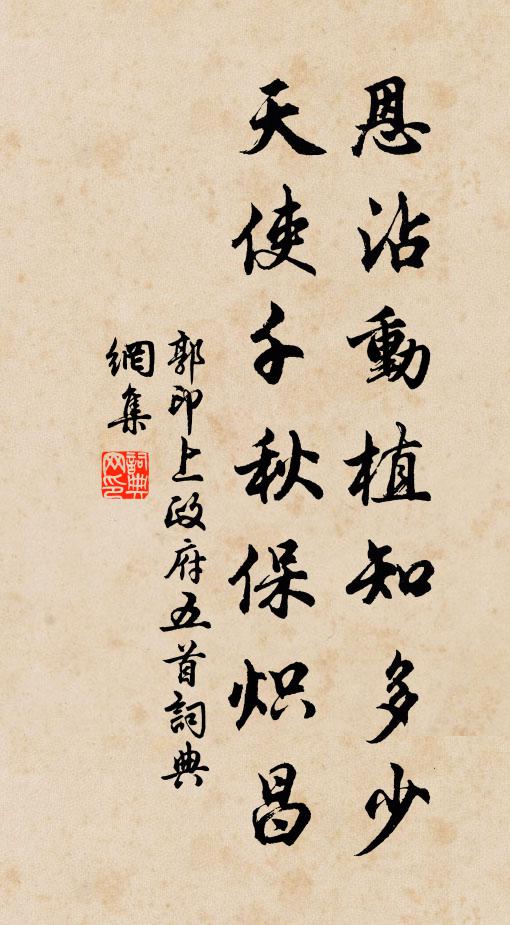 恩沾動植知多少
天使千秋保炽昌
郭印上政府五首詞典
網集
詞典
网印